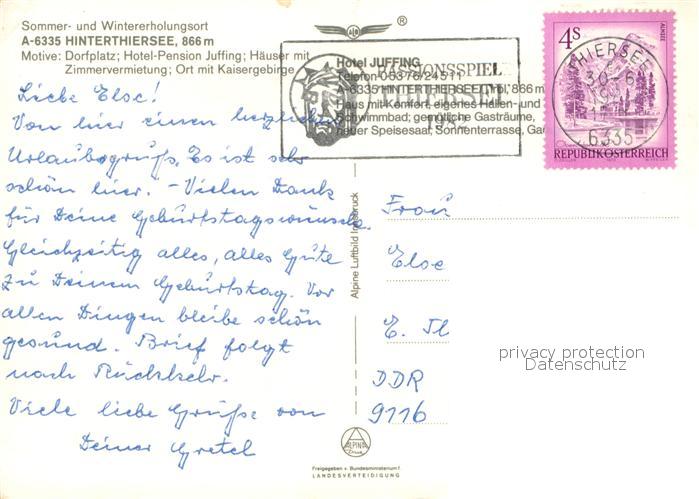 Sommer- und Wintererholungsort
A-6335 HINTERTHIERSEE, 866 m
Motive: Dorfplatz; Hotel-Pension Juffing; Häuser mit
Zimmervermietung; Ort mit Kaisergebirge
®
Hotel JUFFING
Telefon 05376/24511
A-6335 HINTERTHIERSEE, Tirol, 866 m
Haus mit Komfort, eigenes Hallen- und
Schwimmbad; gemütliche Gasträume,
neuer Speisesaal, Sonnenterrasse,
PASSIONSSPIELE
THIERSEE
THIERSEE
6335
4 S
ALMSEE
REPUBLIK ÖSTERREICH
Liebe Else!
Von hier einen herzlichen
Urlaubsgruß. Es ist sehr
schön hier. - Vielen Dank
für Deine Geburtstagswünsche.
Gleichzeitig alles, alles Gute
zu Deinem Geburtstag. Vor
allen Dingen bleibe schön
gesund. Brief folgt
nach Rückkehr.
Viele liebe Grüße von
Deiner Gretel
Alpine Luftbild Innsbruck
Frau
Else
DDR
9116
privacy protection
Datenschutz
ALPINE
Freigegeben v. Bundesministerium f.
LANDESVERTEIDIGUNG